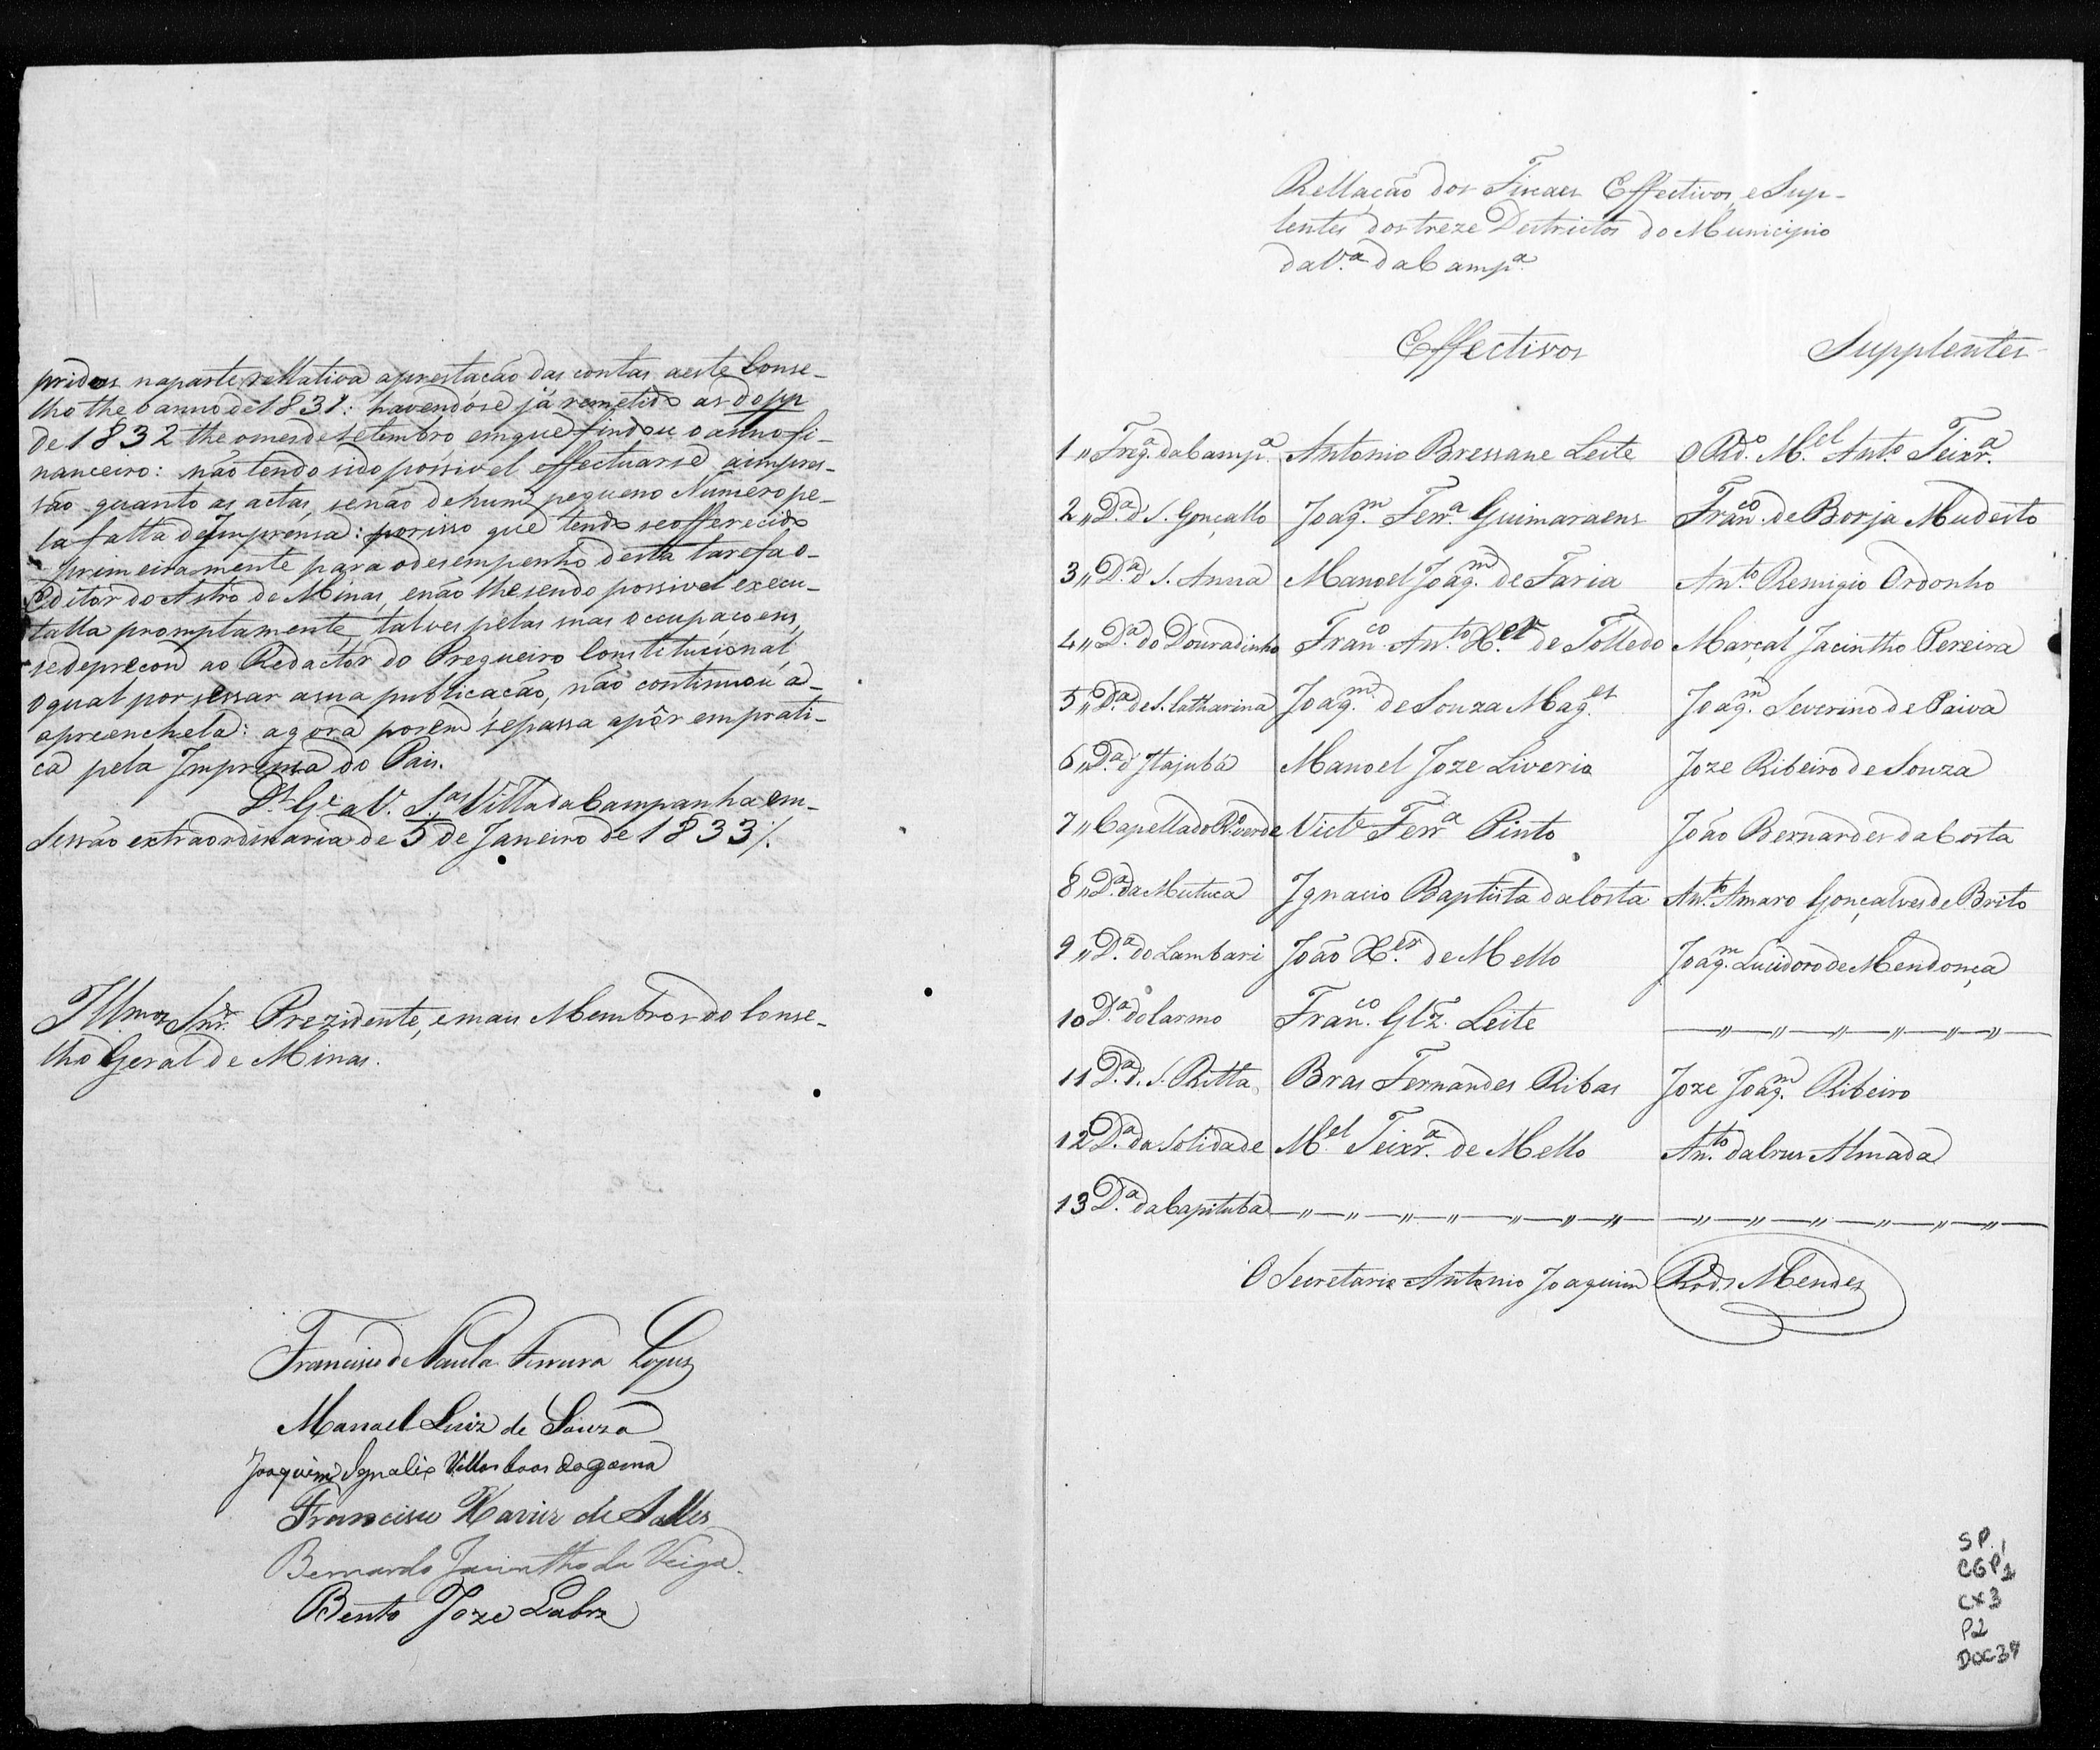 pridas na parte rellativa a prestação das contas a este Conse-
lho the o anno de 1831: havendose já remetido as do pp
de 1832 the o mes de Setembro, em que findou o anno fi-
nanceiro: não tendo sido possivel effectuarse a impres-
são quanto as actas, senão de hum pequeno Numero pe-
la falta de Imprensa: por isso que tendo se offerecido
primeiramente para o desempenho desta tarefa o
Editor do Astro de Minas, e não lhe sendo possivel execu-
talla promptamente, talves pelas suas occupaçoens,
se deprecou ao Redactor do Pregueiro Constitucional,
o qual por sessar a sua publicação, não continuou a
apreenchela: agora porem se passa a pôr em prati-
ca pela Imprensa do Pais.
Ds. Ge. a V. Sas. Villa da Campanha em
Sessão extraordinaria de 5 de Janeiro de 1833/.
Illmos Snr. Prezidente, e mais Membros do Conse-
lho Geral de Minas.
Francisco de Paula Ferreira Lopes
Manoel Luiz de Souza
Joaquim Ignacio Villas boas da gama
Francisco Xavier de Salles
Bernardo Jacintho da Veiga
Bento Joze Labre
Rellação dos Fiscaes Effectivos, e Sup-
lentes dos treze Destrictos do Municipio
da Va. da Campa.
Effectivos Supplentes
1 " Frega. da Campa. Antonio Bressane Leite O Rdo. Mel. Anto. Teixra.
2 " Da. d' S. Gonçallo Joaqm. Ferra. Guimaraens Franco. de Borja Mudesto
3 " Da. d' S. Anna Manoel Joaqm. de Faria Anto. Remigio Ordonho
4 " Da. do Douradinho Franco. Anto. Xer. de Tolledo Marçal Jacintho Pereira
5 " Da. de S. Catharina Joaqm. de Souza Mages. Joaqm. Severino de Paiva
6 " Da. d' Itajubá Manoel Joze Liverio Joze Ribeiro de Souza
7 " Capella do Ro. verde Victe. Ferra. Pinto João Bernardes da Costa
8 " Da. da Mutuca Ignacio Baptista da Costa Anto. Amaro Gonçalves de Brito
9 " Da. do Lambari João Xer. de Mello Joaqm. Lucidoro de Mendonça
10 Da. do Carmo Franco. Glz. Leite — " — " — " — " — " — " —
11 Da. d'. S. Ritta Bras Fernandes Ribas Joze Joaqm. Ribeiro
12 Da. da Solidade Mel. Teixra. de Mello Anto. da Crus Almada
13 Da. da Capituba — " — " — " — " — " — " — " — " — " — " — " — " — " —
O Secretario Antonio Joaquim Rods. Mendes
SP.,
CGP1
CX3
P2
DOC37